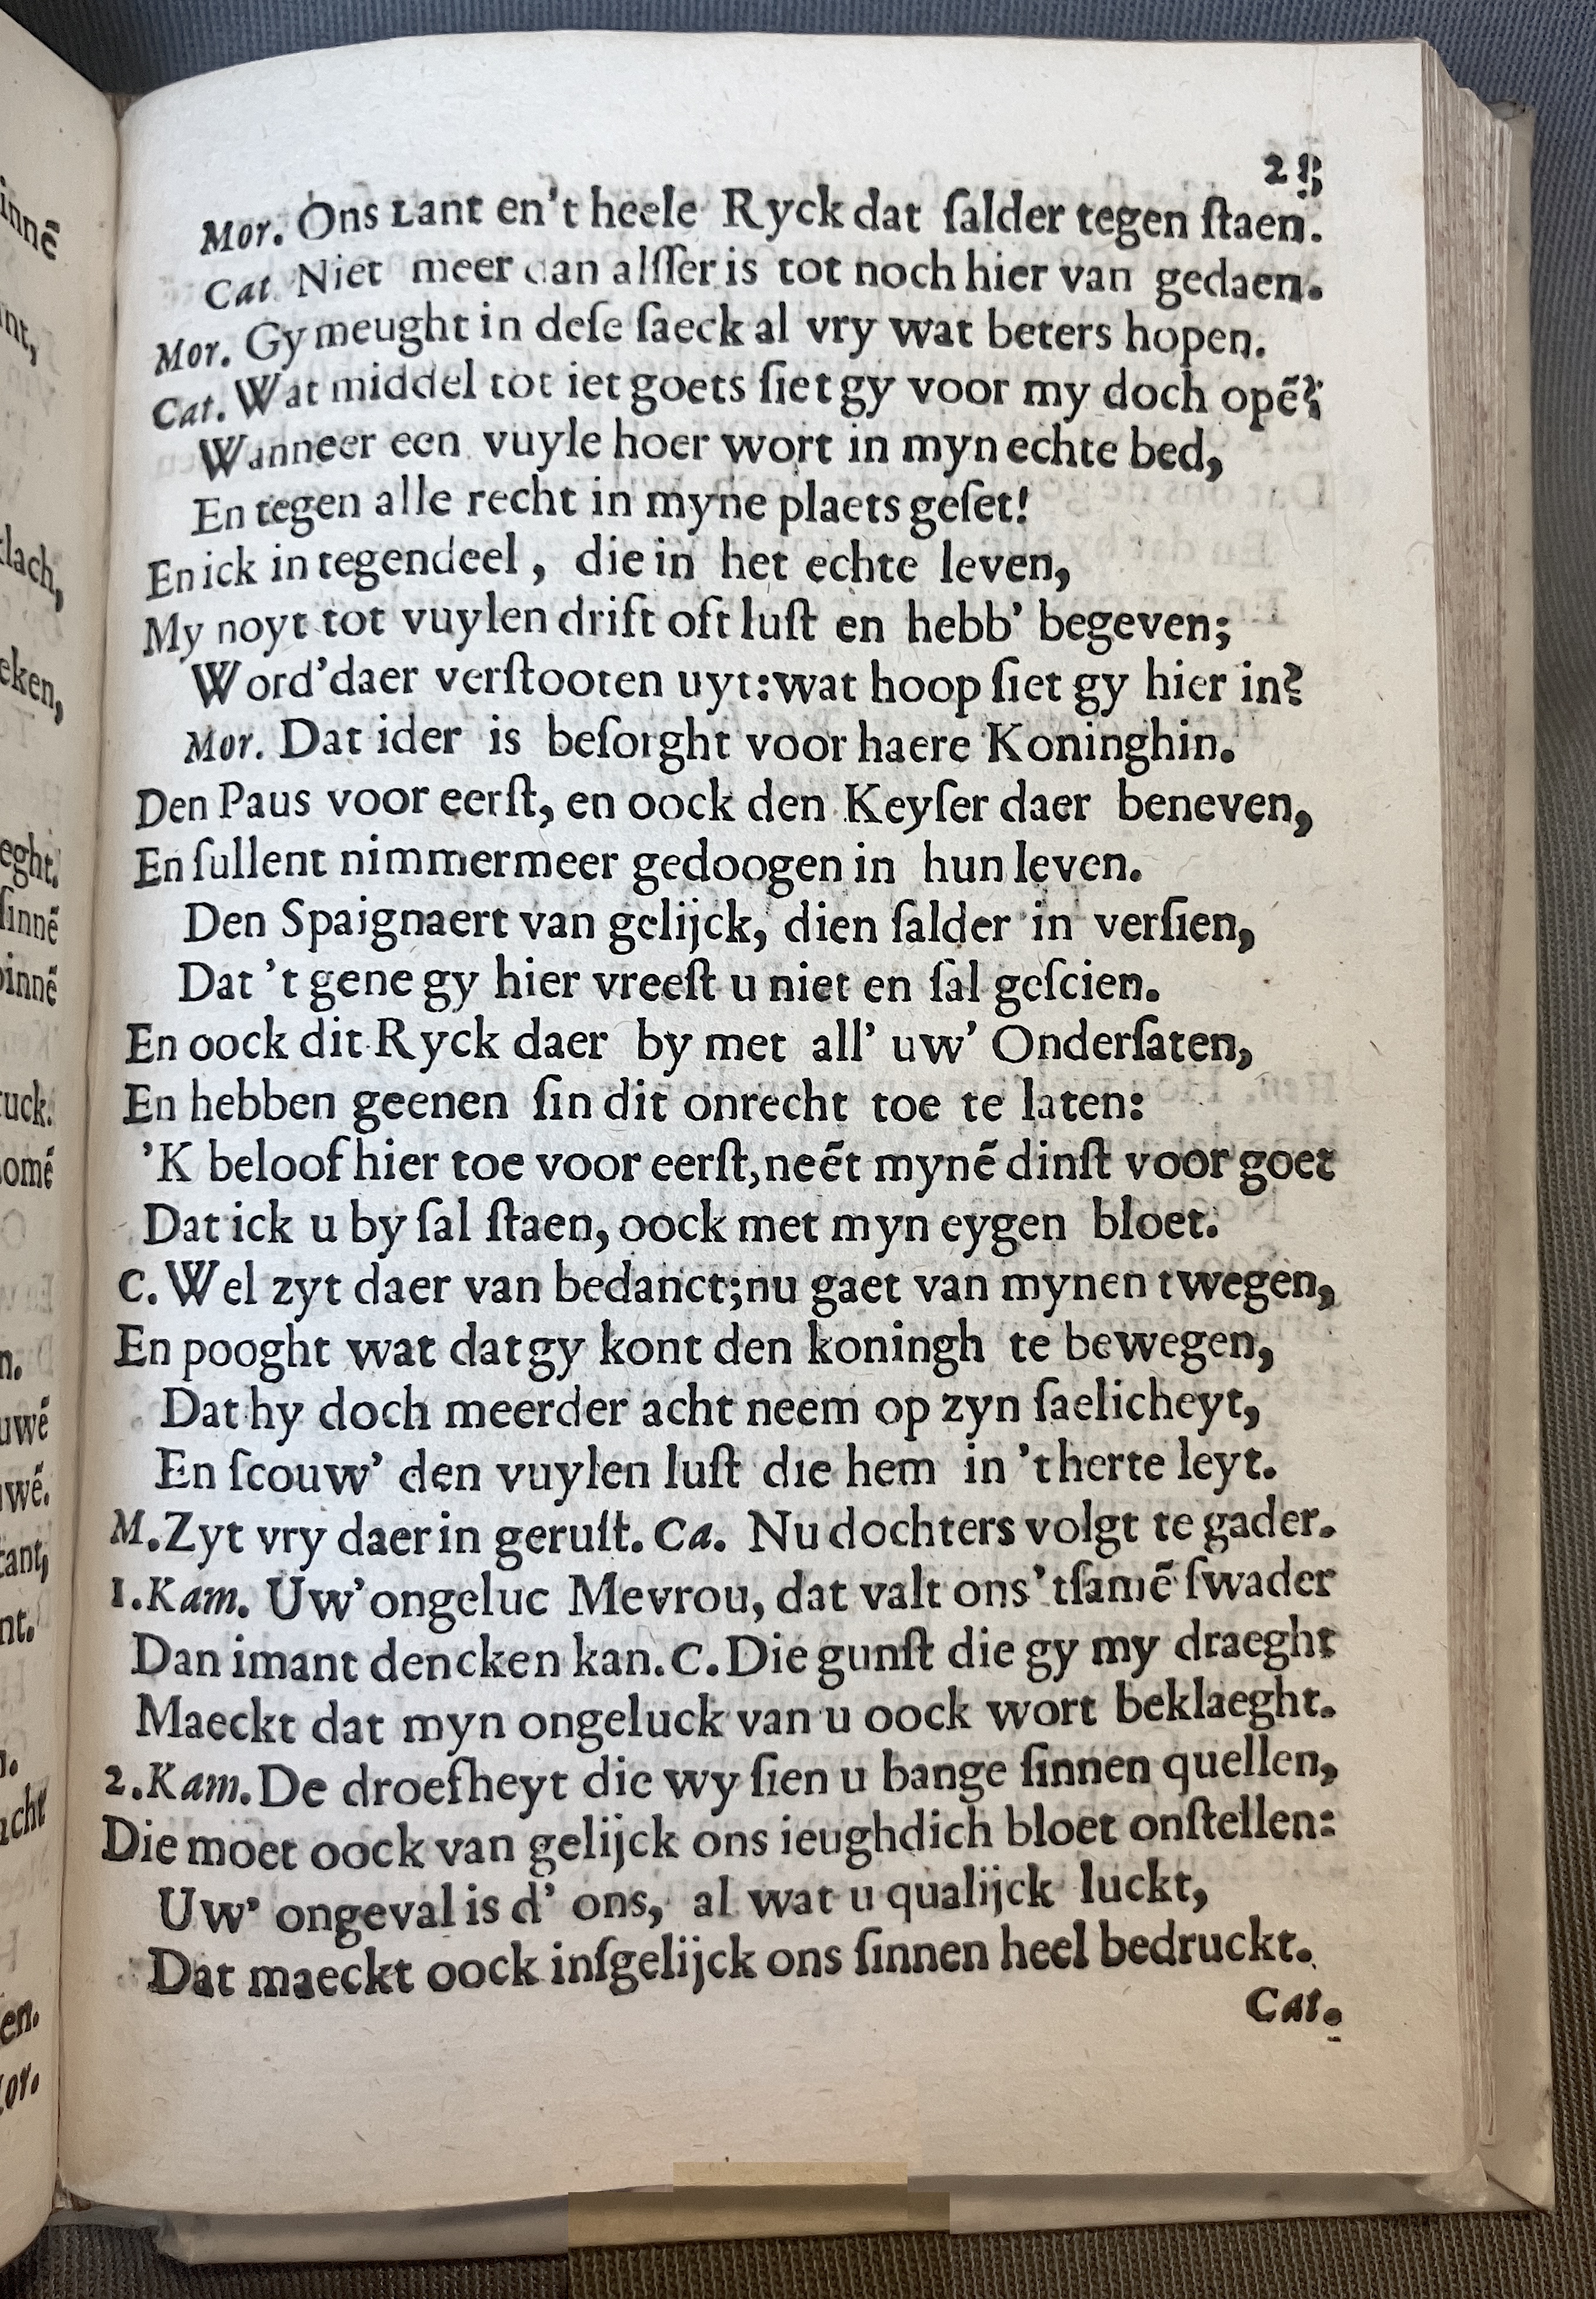 Mor. Ons Lant en't heele Ryck dat ſalder tegen ſtaen.
Cat. Niet meer dan alſſer is tot noch hier van gedaen.
Mor. Gy meught in deſe ſaeck al vry wat beters hopen.
Cat. Wat middel tot iet goets ſiet gy voor my doch opē?
Wanneer een vuyle hoer wort in myn echte bed,
En tegen alle recht in myne plaets geſet!
En ick in tegendeel, die in het echte leven,
My noyt tot vuylen drift oft luſt en hebb' begeven;
Word' daer verſtooten uyt: wat hoop ſiet gy hier in?
Mor. Dat ider is beſorght voor haere Koninghin.
Den Paus voor eerſt, en oock den Keyſer daer beneven,
En ſullent nimmermeer gedoogen in hun leven.
Den Spaignaert van gelijck, dien ſalder in verſien,
Dat 't gene gy hier vreeſt u niet en ſal geſcien.
En oock dit Ryck daer by met all' uw' Onderſaten,
En hebben geenen ſin dit onrecht toe te laten:
'K beloof hier toe voor eerſt, neēt mynē dinſt voor goet
Dat ick u by ſal ſtaen, oock met myn eygen bloet.
C. Wel zyt daer van bedanct; nu gaet van mynen twegen,
En pooght wat dat gy kont den koningh te bewegen,
Dat hy doch meerder acht neem op zyn ſaelicheyt,
En ſcouw' den vuylen luſt die hem in 't herte leyt.
M. Zyt vry daer in geruſt. Ca. Nu dochters volgt te gader.
1. Kam. Uw' ongeluc Mevrou, dat valt ons 'tſamē ſwader
Dan imant dencken kan. C. Die gunſt die gy my draeght
Maeckt dat myn ongeluck van u oock wort beklaeght.
2. Kam. De droefheyt die wy ſien u bange ſinnen quellen,
Die moet oock van gelijck ons ieughdich bloet onſtellen:
Uw' ongeval is d' ons, al wat u qualijck luckt,
Dat maeckt oock inſgelijck ons ſinnen heel bedruckt.
Cat.